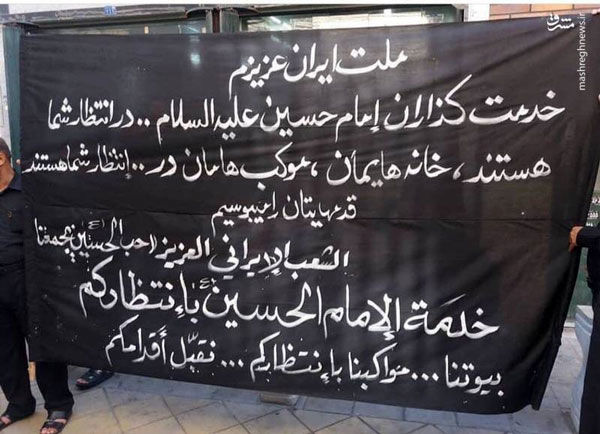 مشرق
mashreghnews.ir
ملت ایران عزیزم
خدمت گذاران إمام حسین علیه السلام .. در انتظار شما
هستند ، خانه هایمان ، موکب هامان در .. إنتظار شما هستند
قدمهایتان رامیبوسیم
الشعب الإيراني العزيز (حب الحسین یجمعنا
خدمة الإمام الحسین ؑ بإنتظارکم
بیوتنا ... مواکبنا بإنتظارکم ... نقبّل أقدامکم